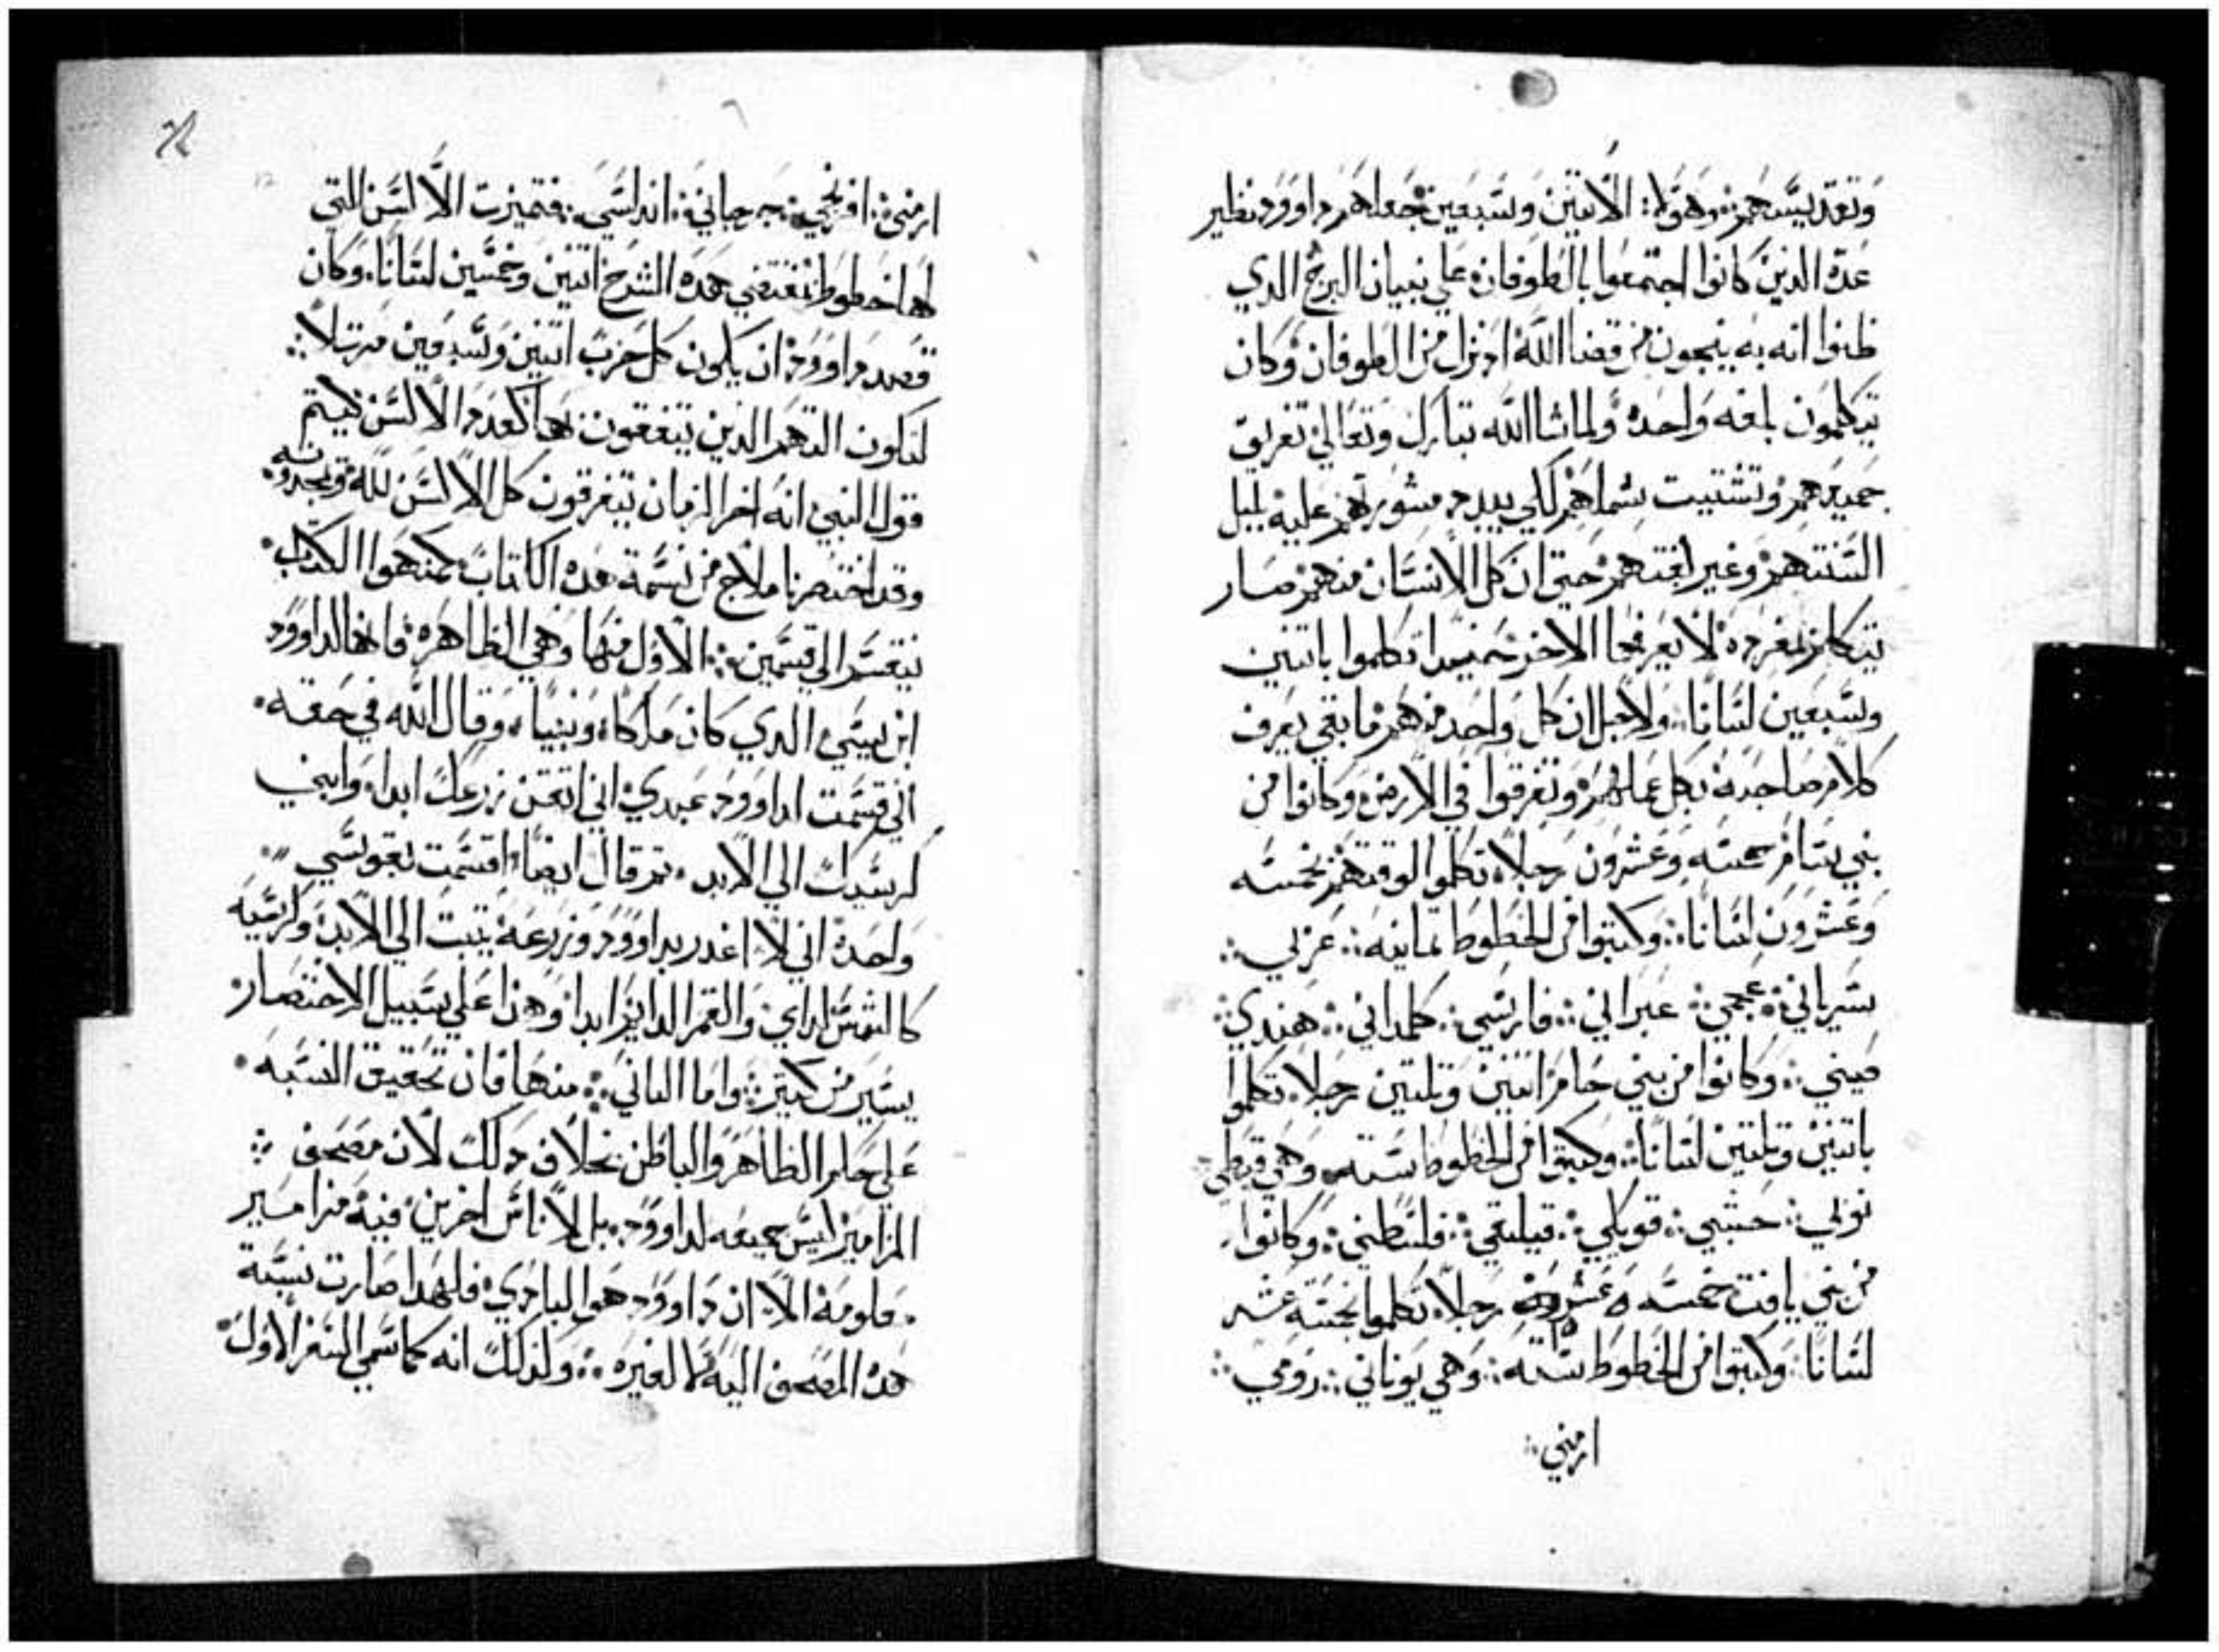 وتقديسهم: وهولا: الاتنين وسبعين جعلهم داوود نظير
عدة الدين كانوا اجتمعوا بالطوفان علي بنيان البرج الدي
ظنوا انه به ينجون من قضا الله ادنزل من الطوفان وكان
يتكلمون بلغه واحده ولما شا الله تبارك وتعالي تفريق
جميعهم وتشتيت شملهم لكي يبيد مشورتهم عليه لبلبل
السنتهم وغير لغتهم حتي ان كل الانسان منهم صار
يتكلم بمفرده لا يعرفها الاخر حينيدا تكلموا باتنين
وسبعين لسانا: ولاجل ان كل واحد منهم ما بقي يعرف
كلام صاحبه بطل عملهم وتفرقوا في الارض وكانوا من
بني سام خمسه وعشرون رجلا تكلموا لوقتهم بخمسه
وعشرون لسانا: وكتبوا من الخطوط تمانيه: عربي:
سرياني: عجمي: عبراني: فارسي: كلداني: هندي:
صيني: وكانوا من بني حام اتنين وتلتين رجلا تكلموا
باتنين وتلتين لسانا: وكتبوا من الخطوط سته وهي قبطي:
نوبي: حبشي: قوبلي: قيلبقي: فلسطني: وكانوا
من بني يافت خمسه عشر رجلا تكلموا بخمسة عشر
لسانا: وكتبوا من الخطوط سته: وهي يوناني: رومي:
ارمني:
ارمني: افرنجي: جرجاني: اندلسي: فتميزت الالسن التي
لها خطوط بمقتضي هده الشرح اتنين وخمسين لسانا: وكان
قصد داوود ان يكون كل حزب اتنين وسبعين مرتلا:
لتكون التهم الدين يتفقون بها كعدد الالسن ليتم
قول النبي انه اخر الزمان يتفرقون كل الالسن لله ويمجدونه
وقد اختصرنا ملاح من نسمة هده الكتاب كمنهوا الكتاب
ينقسم الي قسمين: الاول منها وهي الظاهره فانها لداوود
ابن يسي الدي كان ملكا ونبيا وقال الله في حقه
اني قسمت لداوود عبدي اني اتقن زرعك ابدا وابني
كرسيك الي الابد تم قال ايضا اقسمت بقوسي
واحدة اني لا اغدر بداوود وزرعه يتبت الي الابد وكرسيه
كالشمس لداي والقمر الدايم ابدا وهدا علي سبيل الاختصار
يسير من كتير: واما التاني: منها فان تحقيق النسبه
علي حلم الظاهر والباطن بخلاف دلك لان مصحف
المزامير ليس جميعه لداوود بل لاناس اخرين فيه مزامير
معلومة الا ان داوود هوا البادي فلهدا صارت نسبة
هده المصحف اليه لا لغيره: ولدلك انه كما سمي السفر الاول